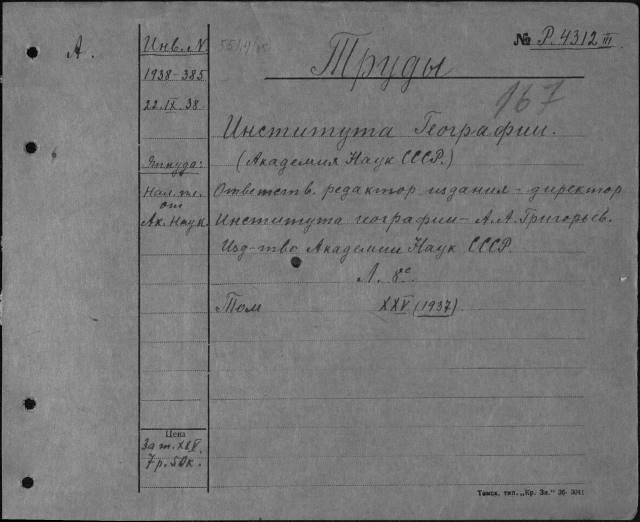 А.
Инв. N
1938-385
22.IX.38
№ Р.4312 III
Труды
167
Института Географии.
Откуда:
(Академия Наук СССР.)
Нал. пл.
от
Ак. Наук.
Ответств. редактор издания - директор
Института географии - А.А.Григорьев.
Изд-тво Академии Наук СССР.
Л. 8º
Том XXV (1937)
Цена
За т. XXV.
7 р. 50к.
Томск, тип. „Кр. Зн." 36-3041